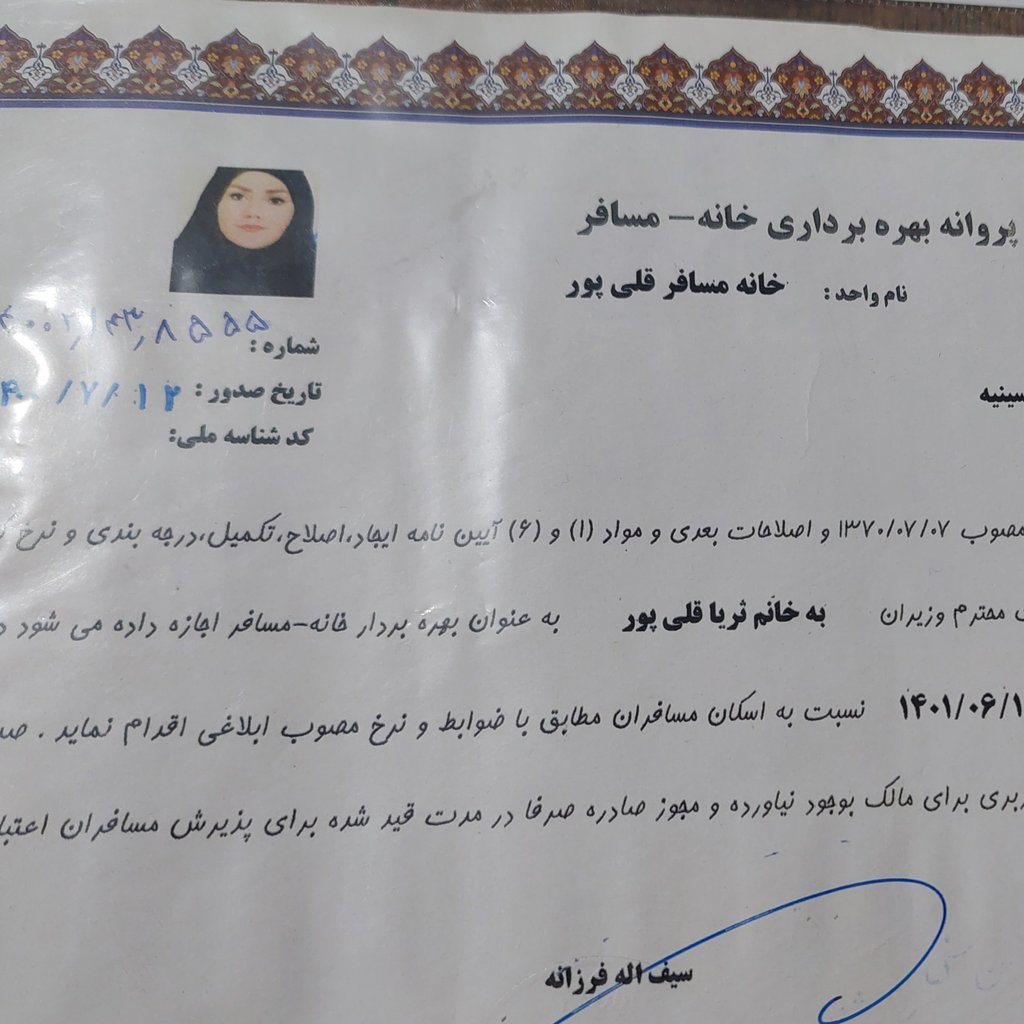 پروانه بهره برداری خانه– مسافر
نام واحد: خانه مسافر قلی پور
شماره:
تاریخ صدور: /۷/۱۲
کد شناسه ملی:
مصوب ۱۳۷۰/۰۷/۰۷ و اصلاحات بعدی و مواد (۱) و (۶) آیین نامه ایجاد،اصلاح،تکمیل،درجه بندی و نرخ
محترم وزیران به خانم ثریا قلی پور به عنوان بهره بردار خانه-مسافر اجازه داده می شود
نسبت به اسکان مسافران مطابق با ضوابط و نرخ مصوب ابلاغی اقدام نماید .
برای مالک بوجود نیاورده و مجوز صادره صرفا در مدت قید شده برای پذیرش مسافران
سیف اله فرزانه